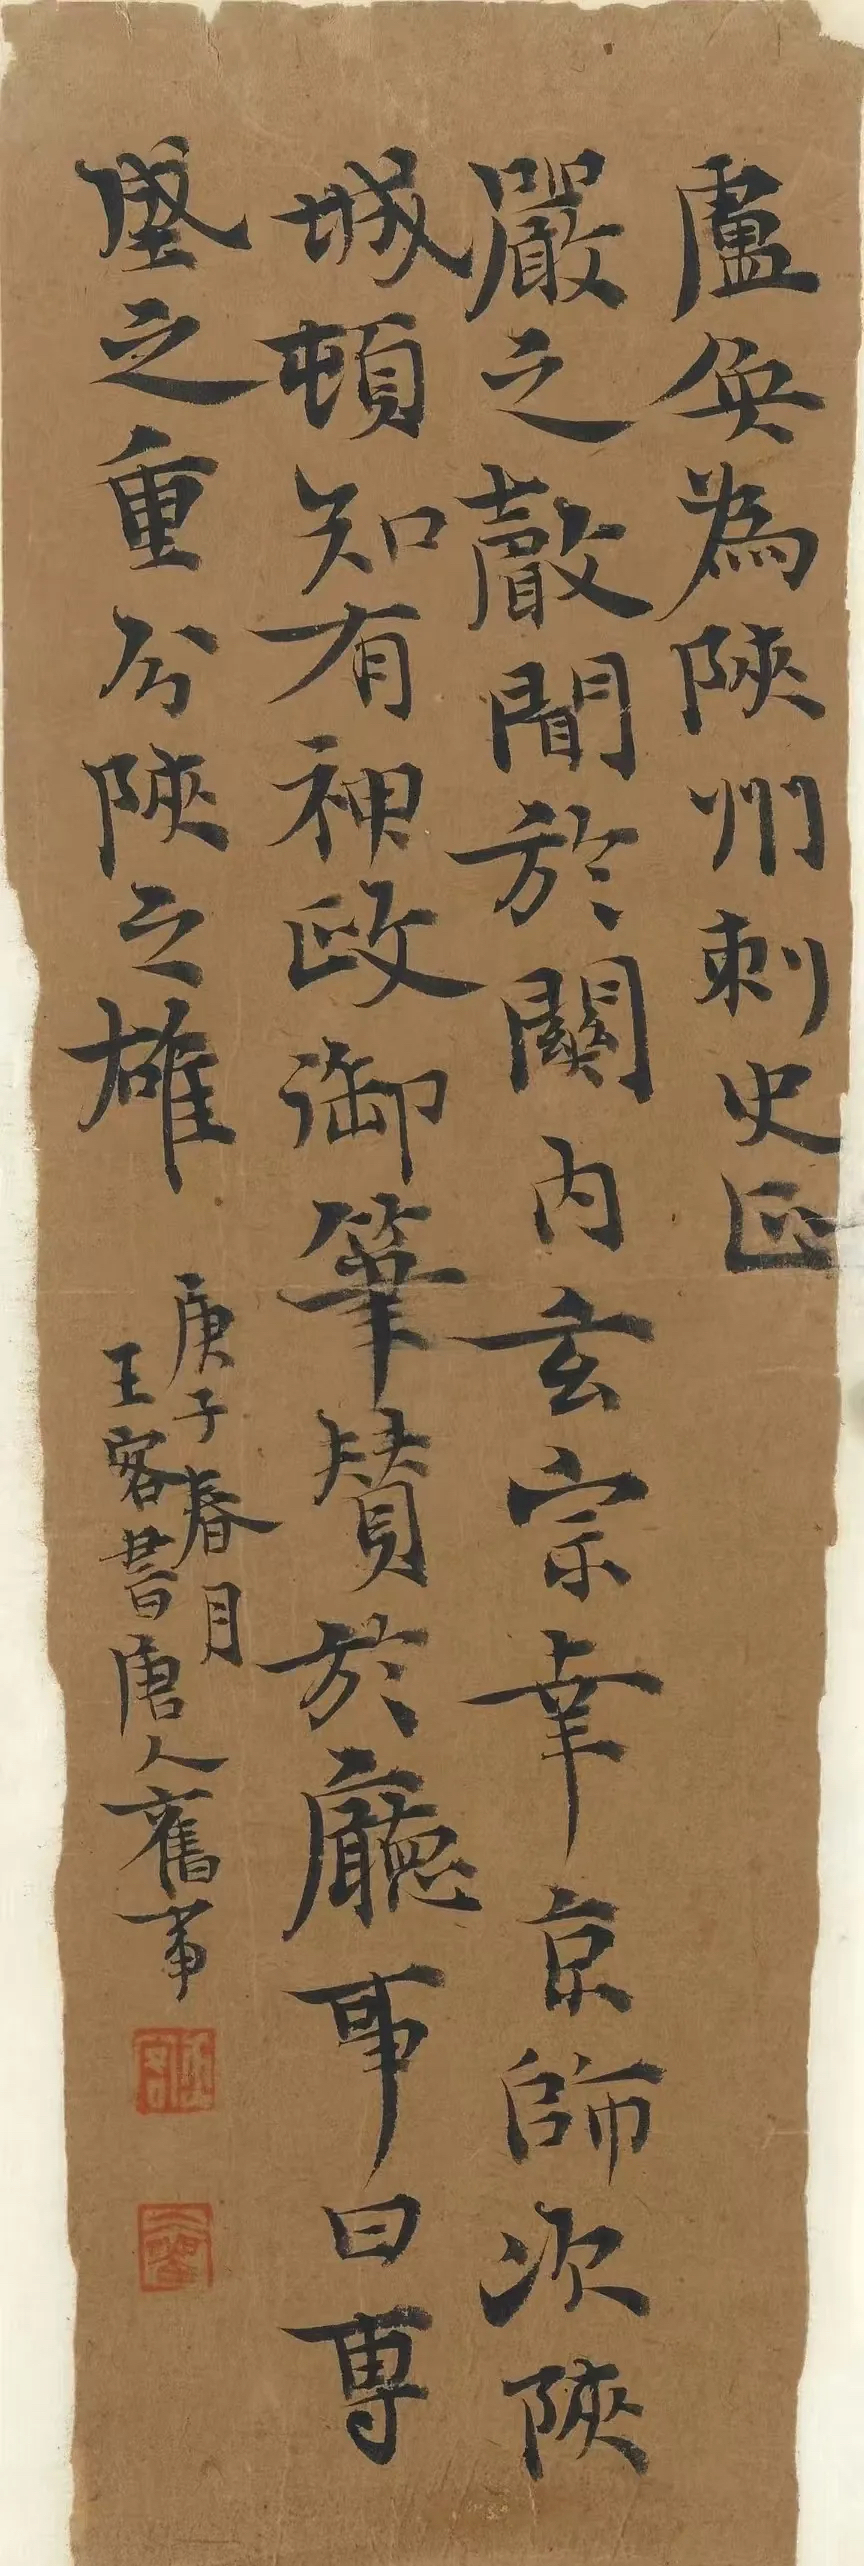 盧奐為陝州刺史𠙺
嚴之聲聞於關內玄宗幸京師次陝
城頓知有神政御筆贊於廳事曰專
城之重分陝之雄
庚子春月
王客書唐人舊事